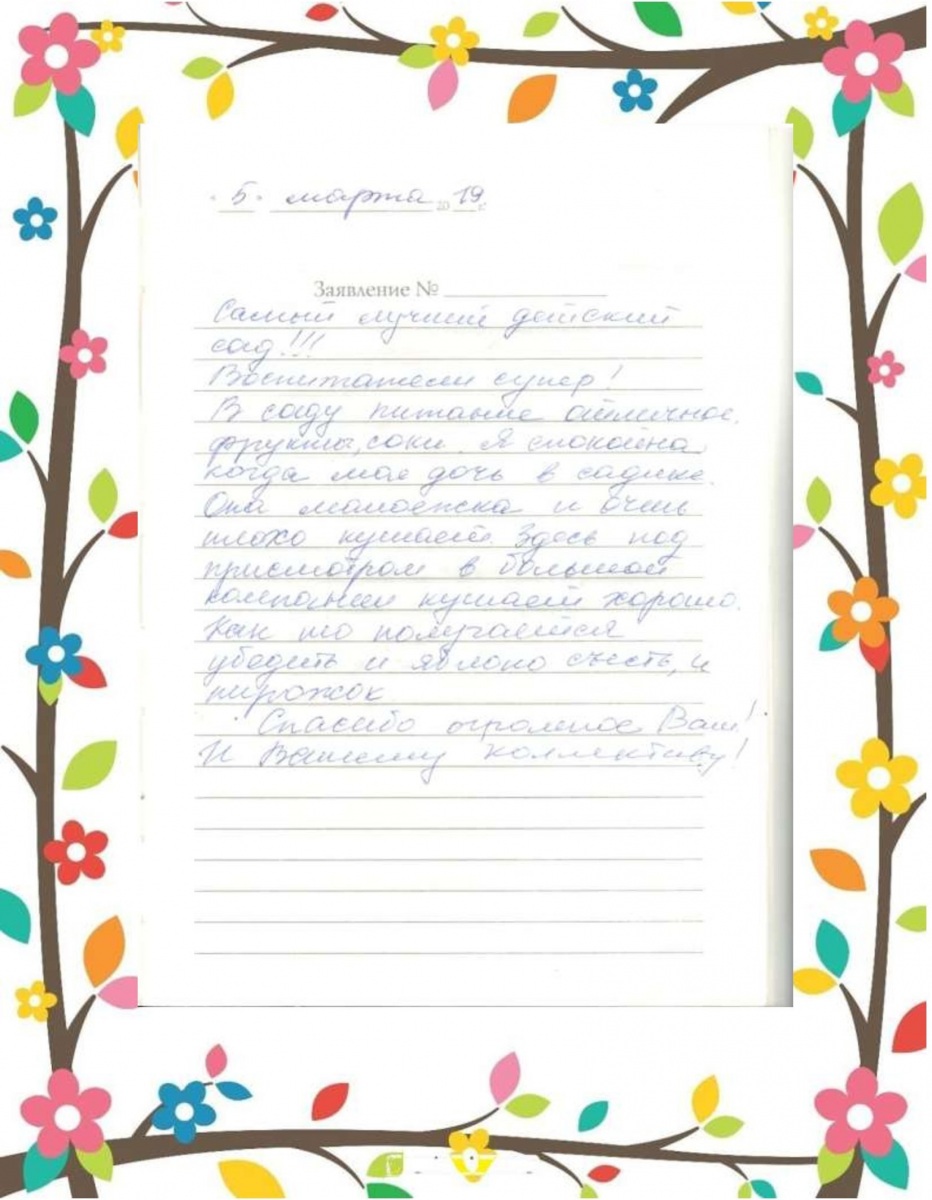 "5" марта 2019 г.
Заявление №
Самый лучший детский
сад!!!
Воспитатели супер!
В саду питание отличное,
фрукты, соки. Я спокойна,
когда моя дочь в садике.
Она малоежка и очень
плохо кушает. Здесь под
присмотром в большой
компании кушает хорошо.
Как то получается
убедить и яблоко съесть, и
пирожок
Спасибо огромное Вам!
И Вашему коллективу!